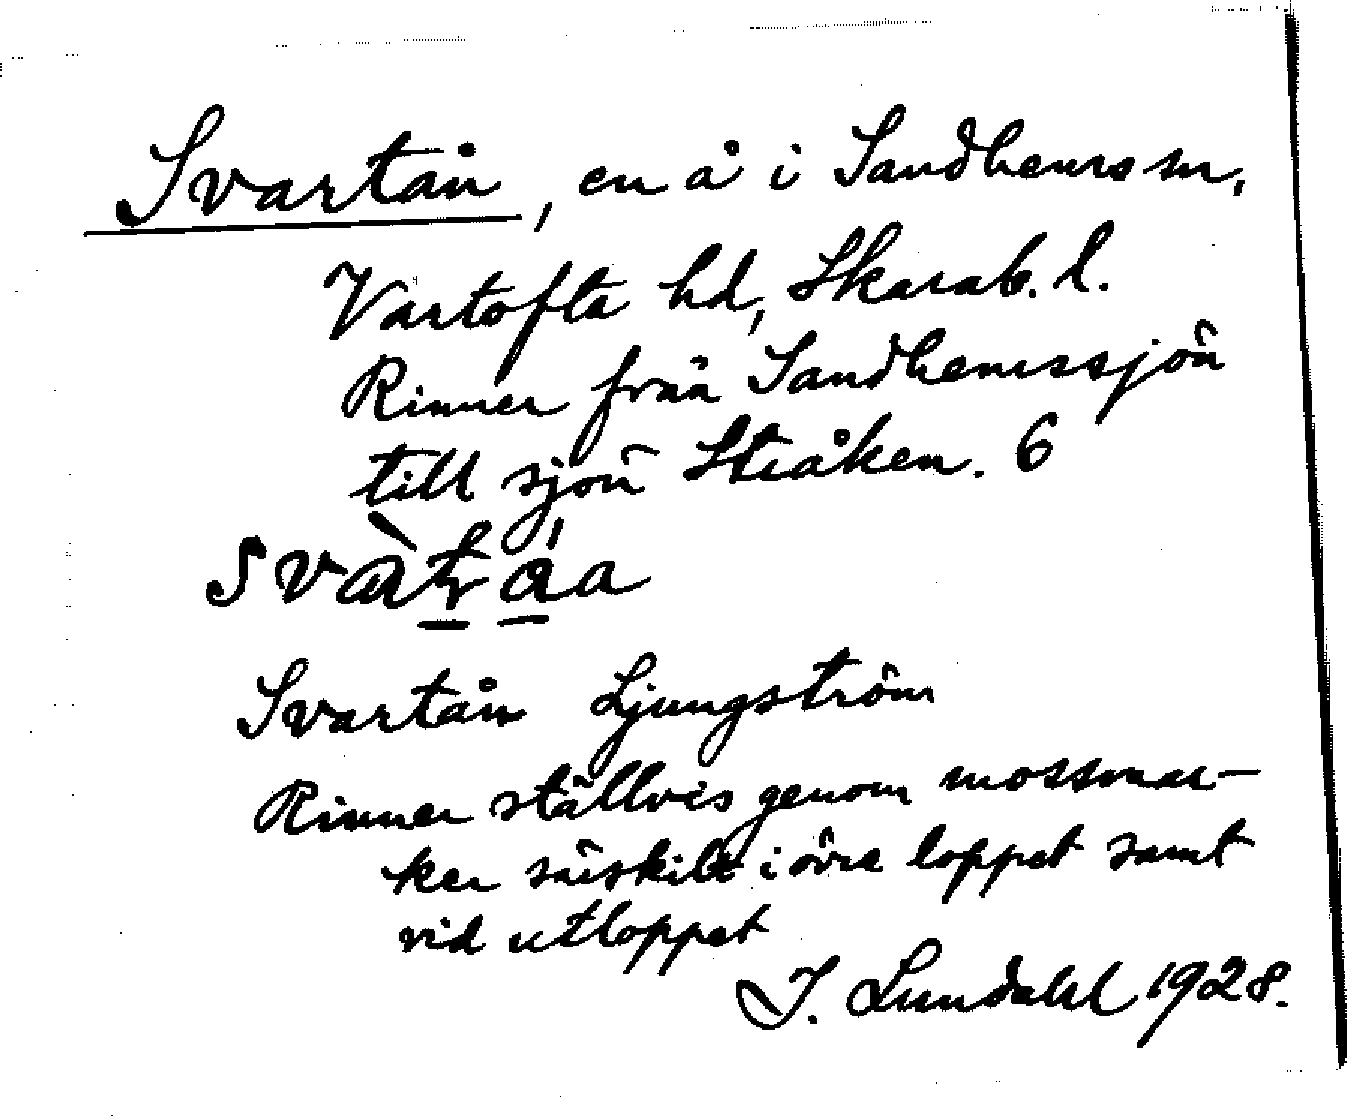 Svartån, en å i Sandhems sn,
Vartofta hd, Skarab. l.
Rinner från Sandhemssjön
till sjön Stråken. 6
Svartån Ljungström
Rinner ställvis genom mossmar-
ker särskilt i övre loppet samt
vid utloppet
I. Lundahl 1928.